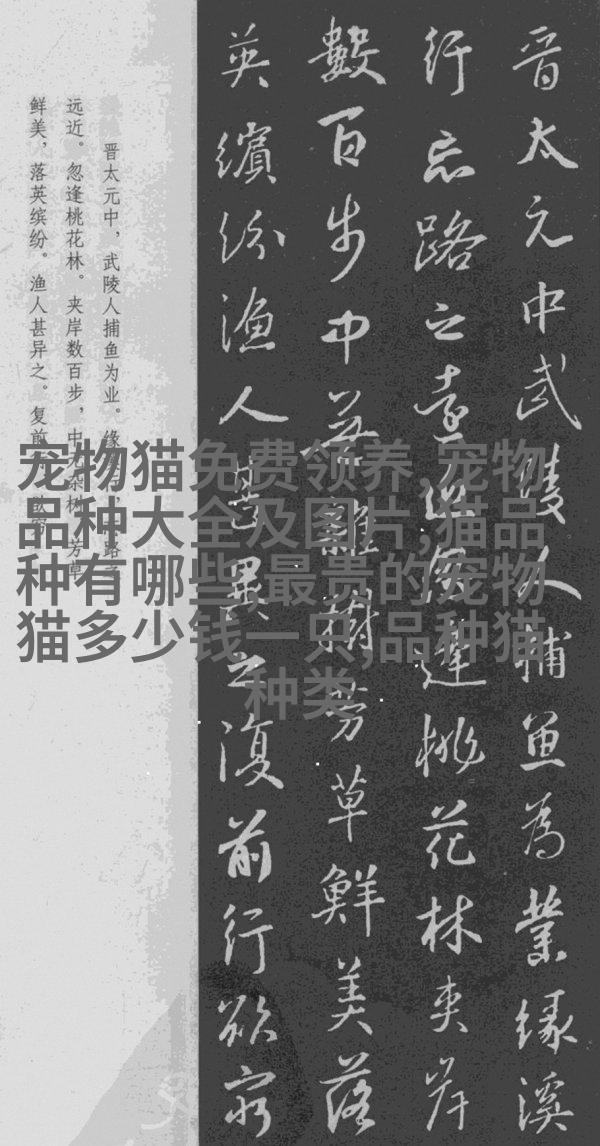 晋太元中武陵人捕魚為業缘溪
行忘路之遠近忽逢桃花林夾岸
數百步中無雜樹芳草鮮美落
英繽紛漁人甚異之復前行欲窮
晋太元中，武陵人捕鱼为业。缘溪行，忘路之
远近。忽逢桃花林。夹岸数百步，中无杂树，芳草
鲜美，落英缤纷。渔人甚异之。复前
宠物猫免费领养,宠物
品种大全及图片,猫品
种有哪些,最贵的宠物
猫多少钱一只,品种猫
种类